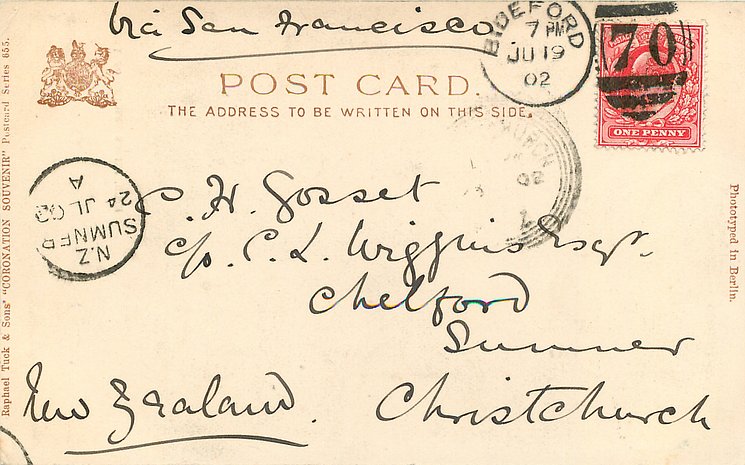 Via San Francisco
BIDEFORD
7 PM
JU 19
02
70
ONE PENNY
POST CARD.
THE ADDRESS TO BE WRITTEN ON THIS SIDE.
02
A
24 JL 02
SUMNER
N.Z
H. Gosset
c/o. C. L. Wiggins Esqr.
Chelford
Sumner
Christchurch
New Zealand.
Raphael Tuck & Sons' "CORONATION SOUVENIR" Postcard Series 655.
Phototyped in Berlin.